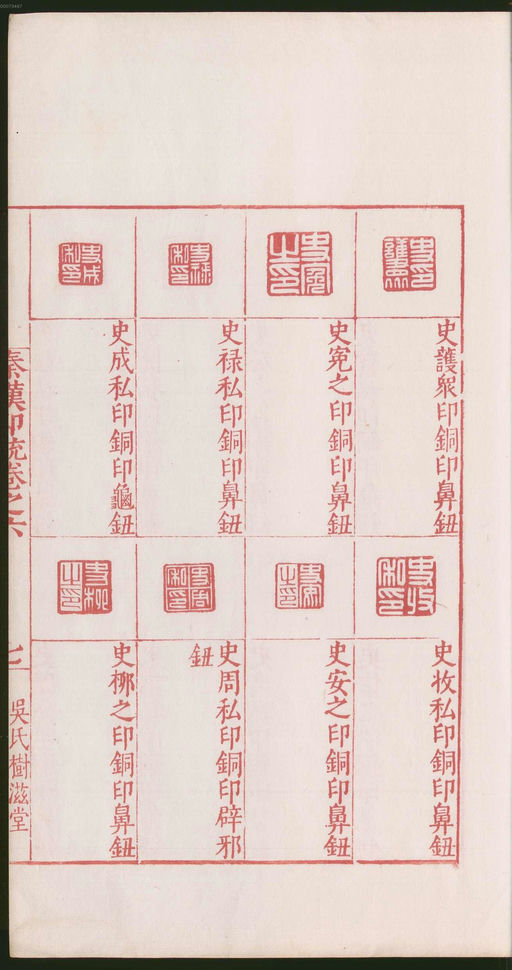 00073467
史護眾印銅印鼻鈕
史寃之印銅印鼻鈕
史祿私印銅印鼻鈕
史成私印銅印龜鈕
史牧私印銅印鼻鈕
史安之印銅印鼻鈕
史周私印銅印辟邪
鈕
史柳之印銅印鼻鈕
秦漢印統卷之六
七
吳氏樹滋堂